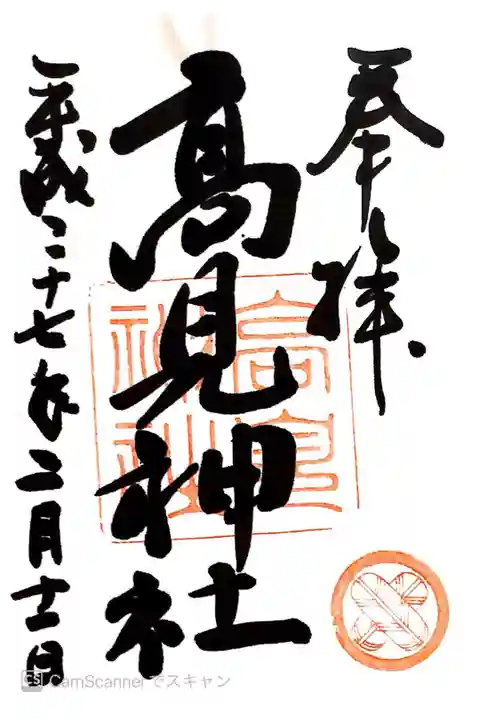 奉拝
高見神社
平成二十七年二月十一日
CamScannerでスキャン